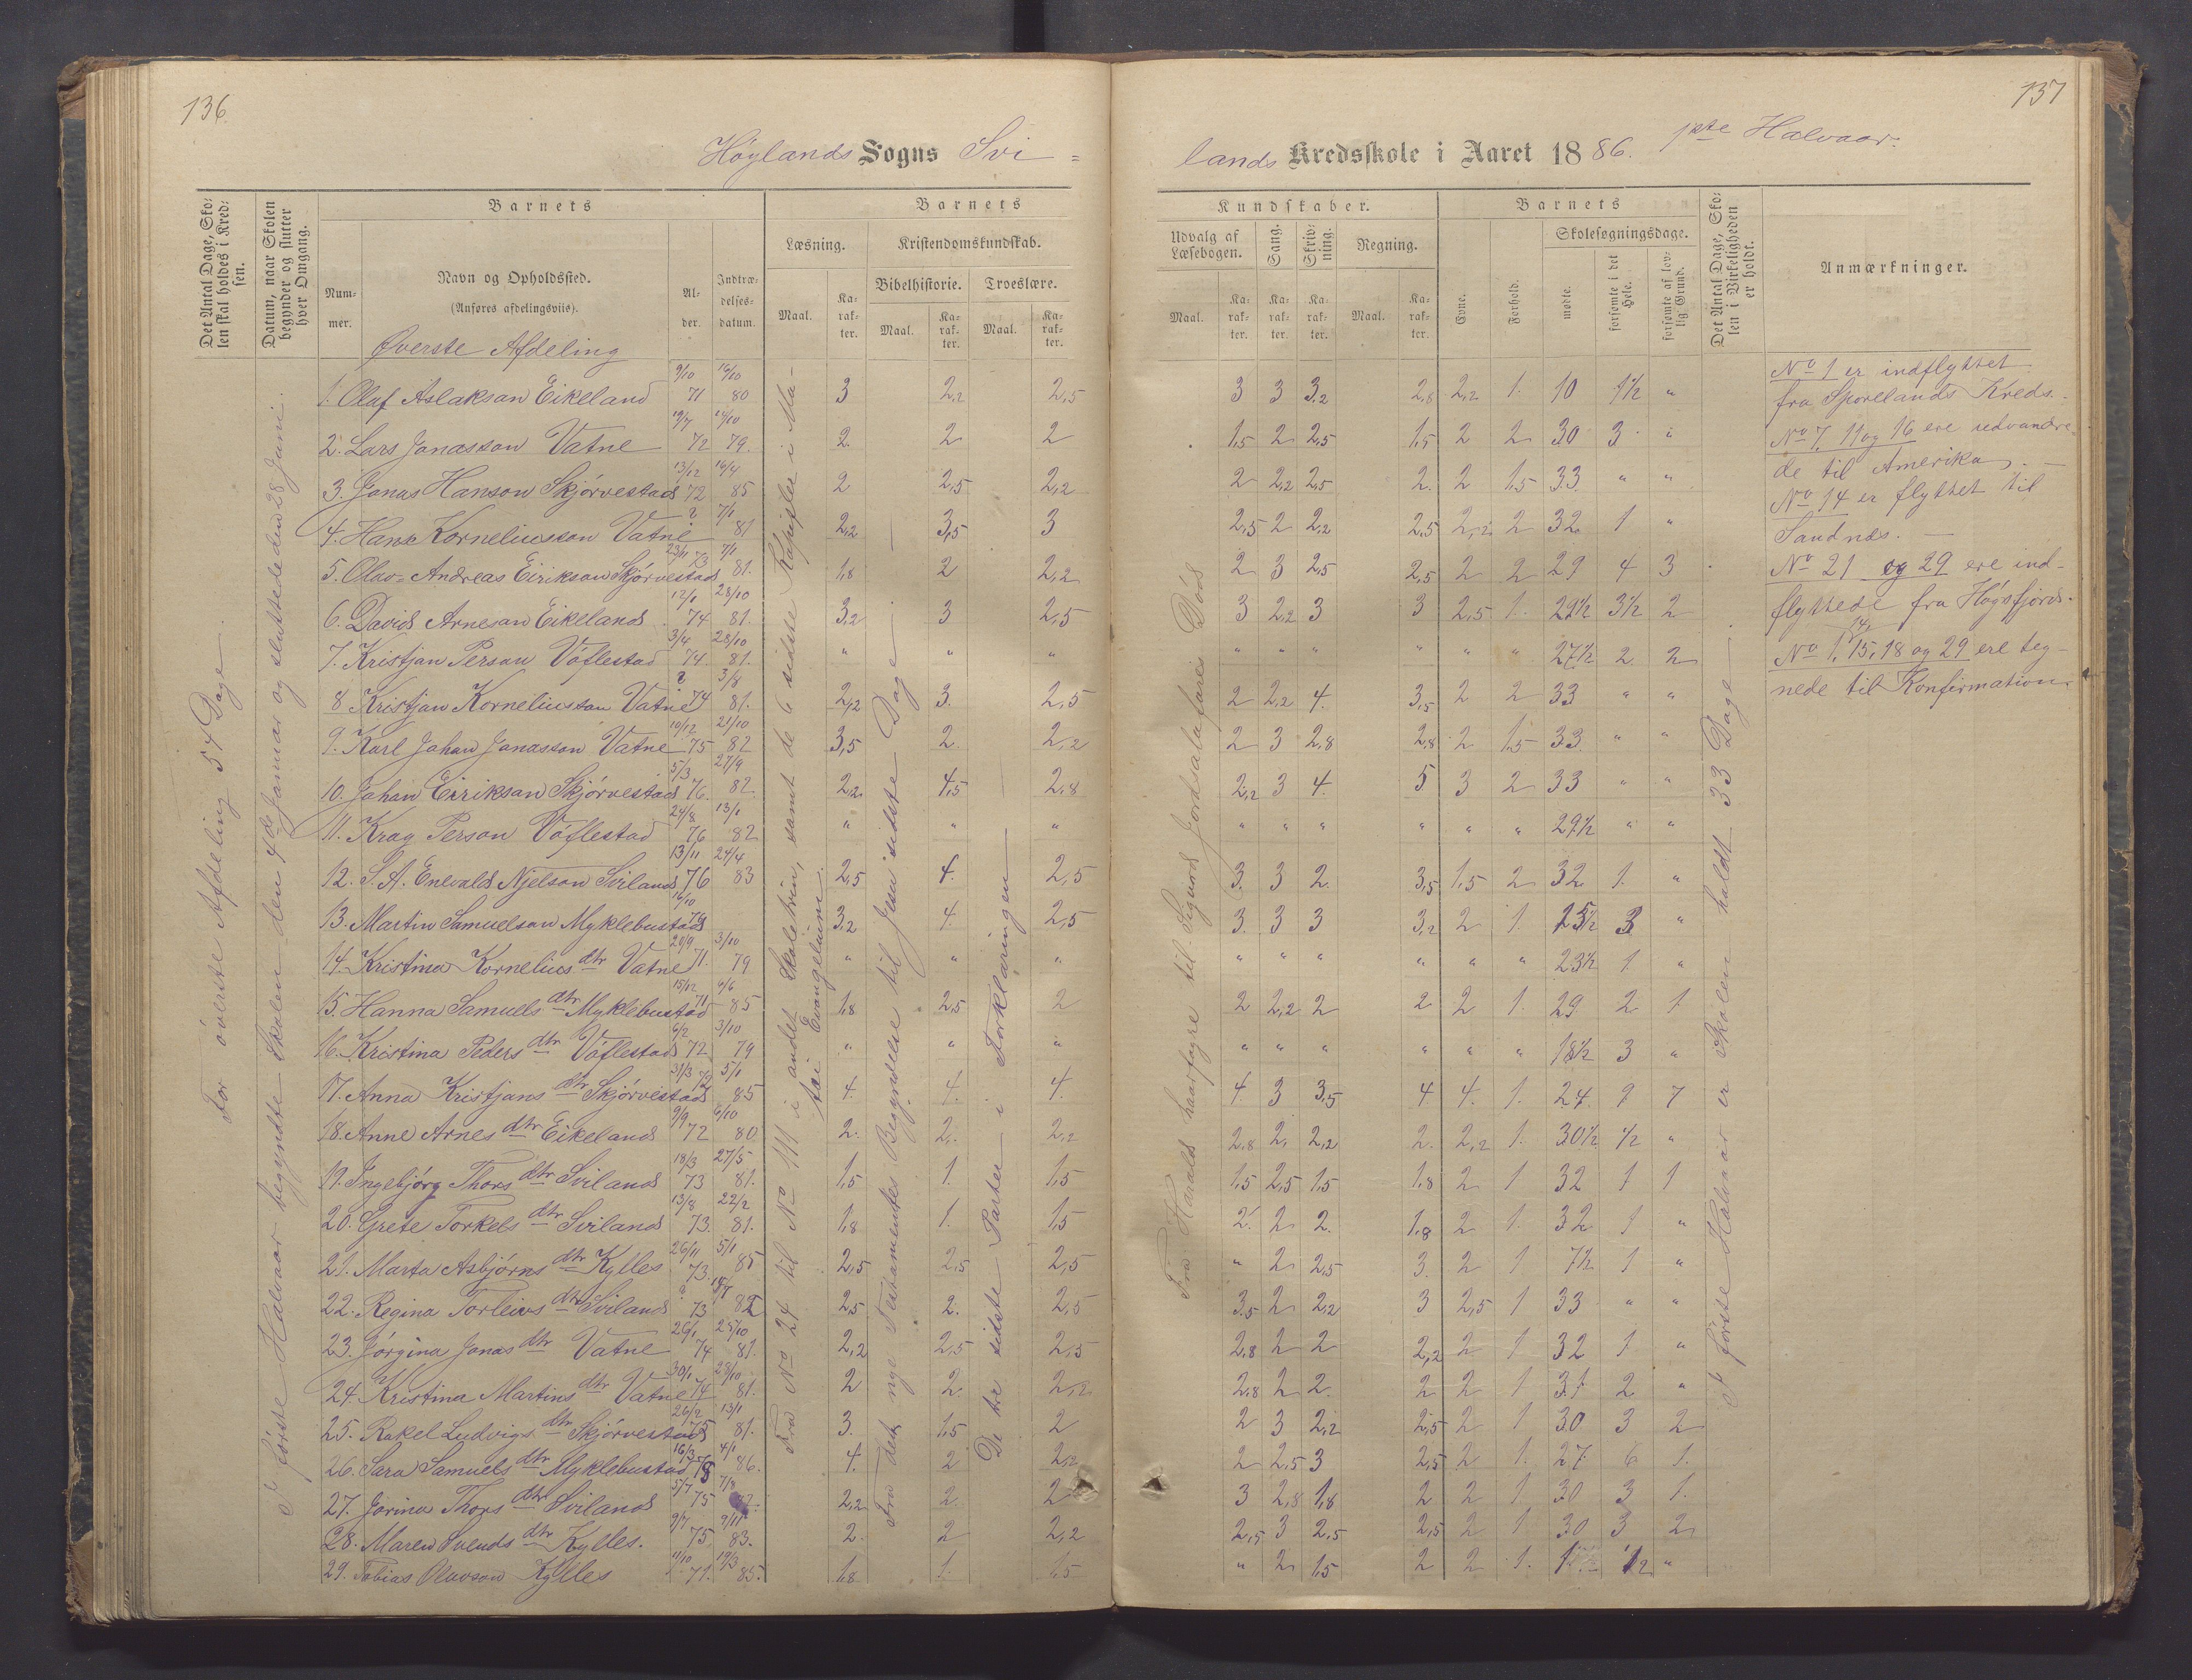 136.
137
Höglands Sogns Svi=
lands Kredsskole i Aaret 1886. 1ste Halvaar.
Det Antal Dage, Skolen skal holdes i Kredsen.
Datum, naar Skolen begynder og slutter hver Omgang.
Barnets
Nummer.
Navn og Opholdssted.
(Anføres afdelingsviis).
Alder.
Indtrædelsesdatum.
Barnets
Læsning.
Kristendomskundskab.
Bibelhistorie. Troeslære.
Maal. Karakter. Maal. Karakter. Maal. Karakter.
Kundskaber.
Udvalg af Læsebogen. Sang. Skrivning. Regning.
Maal. Karakter. Karakter. Karakter. Maal. Karakter.
Barnets
Evne. Forhold.
Skolesøgningsdage.
mødte. forsømte i det Hele. forsømte af lovlig Grund.
Det Antal Dage, Skolen i Virkeligheden er holdt.
Anmærkninger.
For överste Afdeling 54 Dage.
I förste Halvaar begyndte Skolen den 4de Januar og sluttede den 28 Juni.
Fra No 24 til No 111 i andet Skoletrin, samt de 6 sidste Kapitler i Mataei Evangelium.
Fra det nye Testamentes Begyndelse til Jesu sidste Dage
De tre sidste Parter i Forklaringen
Fra Harald haarfagre til Sigurd Jorsalafares Död
I förste Halvaar er Skolen holdt 33 Dage
Överste Afdeling
1. Olaf Aslakson Eikeland 9/10 71 16/10 80 3 2,2 2,5 3 3 3,2 2,8 2,2 1. 10 1½ "
2. Lars Jonasson Vatne 19/7 72 14/10 79. 2. 2 2 1,5 2 2,5 1,5 2 2 30 3 "
3. Jonas Hanson Skjörvestad 13/12 72 16/4 85 2 2,5 2,2 2 2,2 2,5 2. 2 1,5 33 " "
4. Hans Korneliusson Vatne 7/1 81 2,2 3,5 3 2,5 2 2,2 2,5 2,2 2 32 1 "
5. Olav=Andreas Eirikson Skjörvestad 23/11 73 7/1 81. 1,8 2 2,2 2 3 2,5 2,5 2 2 29 4 3
6. David Arneson Eikeland 12/1 74 28/10 81. 3,2 3 2,5 3 2,2 3 3 2,5 1. 29½ 3½ 2
7. Kristjan Person Vöflestad 3/4 74. 28/10 81. " " " " " " " " " 27½ 2 2
8 Kristjan Korneliusson Vatne 74 3/8 81. 2,2 3. 2,5 2 2,2 4. 3,5 2 2 33 " "
9. Karl Johan Jonasson Vatne 10/12 75 21/10 82 3,5 2. 2,2 2 3 2,8 2,8 2 1,5 33 " "
10. Johan Eirikson Skjörvestad 5/3 76. 27/9 82. 2,2 4,5 2,8 2,2 3 4. 5 3 2 33 " "
11. Krag Person Vöflestad 24/8 76 13/1 82 " " " " " " " " " 29½ " "
12. S. A. Enevald Njelson Sviland 13/11 76 24/4 83 2,5 4. 2,5 3. 3 2. 3,5 1,5 2 32 1. "
13. Martin Samuelson Myklebustad 16/10 3,2 4. 2,5 3. 3 3 3,2 2 1. 25½ 3 "
14. Kristina Kornelius dtr Vatne 20/9 71. 3/10 79 " " " " " " " " " 23½ 1. "
15. Hanna Samuels dtr Myklebustad 15/12 71 4/6 85 1,8 2,5 2 2 2,2 2 2 2 1. 29 2 1
16. Kristina Peders dtr Vöflestad 6/2 72 3/10 79 " " " " " " " " " 18½ 3 "
17. Anna Kristjans dtr Skjörvestad 31/3 72 5/1 85 4. 4. 4. 4. 3 3,5 4 4. 1. 24. 9 7
18. Anne Arnes dtr Eikeland 9/9 72 6/10 80 2. 2. 2,2 2,8 2. 2,2 2. 2,2 1. 30½ ½ "
19. Ingebjörg Thors dtr Sviland 18/3 73 27/5 81. 1,5 1. 1,5 1,5 2,5 1,5 1,8 2 1 32 1 1
20. Grete Torkels dtr Sviland 13/8 73. 22/2 81. 1,8 1. 1,5 2. 2 2. 1,8 2 1. 32 1 "
21. Marta Asbjörns dtr Kylles 26/11 73. 5/1 85 2,5 2,5 2,5 " 2 2,5 3. 2 1 7½ 1 "
22. Regina Torleivs dtr Sviland 73 82 2,5 2. 2,5 3,5 2 2,2 3 2,5 1 33 " "
23. Jörgina Jonas dtr Vatne 26/1 74 25/10 81. 2,2 2,5 2,5 2,8 2 2 2,2 2 1 32 1 "
24. Kristina Martins dtr Vatne 30/1 74 23/10 81. 2 2. 2,2 2,8 2 2. 2 2 1 31 2 "
25. Rakel Ludvigs dtr Skjörvestad 26/2 75 13/1 81. 3. 1,5 2 2 3 2,2 2,5 2 1 30 3 2
26. Sara Samuels dtr Myklebustad 16/3 4/1 86. 4. 2 2,2 2 2,5 3 2,5 2 1. 27 6 1.
27. Jorina Thors dtr Sviland 5/7 75 7/8 2,2 2. 2 3 2,8 1,8 2 2 1 30 3 1.
28. Maren Svends dtr Kylles. 9/7 75 9/11 83. 2. 2 2,2 2,5 3 2,5 2,5 2 1. 30 3 2
29. Tobias Olavson Kylles 11/10 71. 19/3 85. 1,8 1. 1,5 " 2 1,5 2 2 1. ½ "
No 1 er indflyttet
fra Sporelands Kreds.
No 7, 11 og 16 ere udvandre
de til Amerika. —
No 14 er flyttet til
Sandnæs. —
No 21 og 29 ere ind-
flyttede fra Högsfjord.
No 1, 14, 15, 18 og 29 ere teg-
nede til Konfirmation.